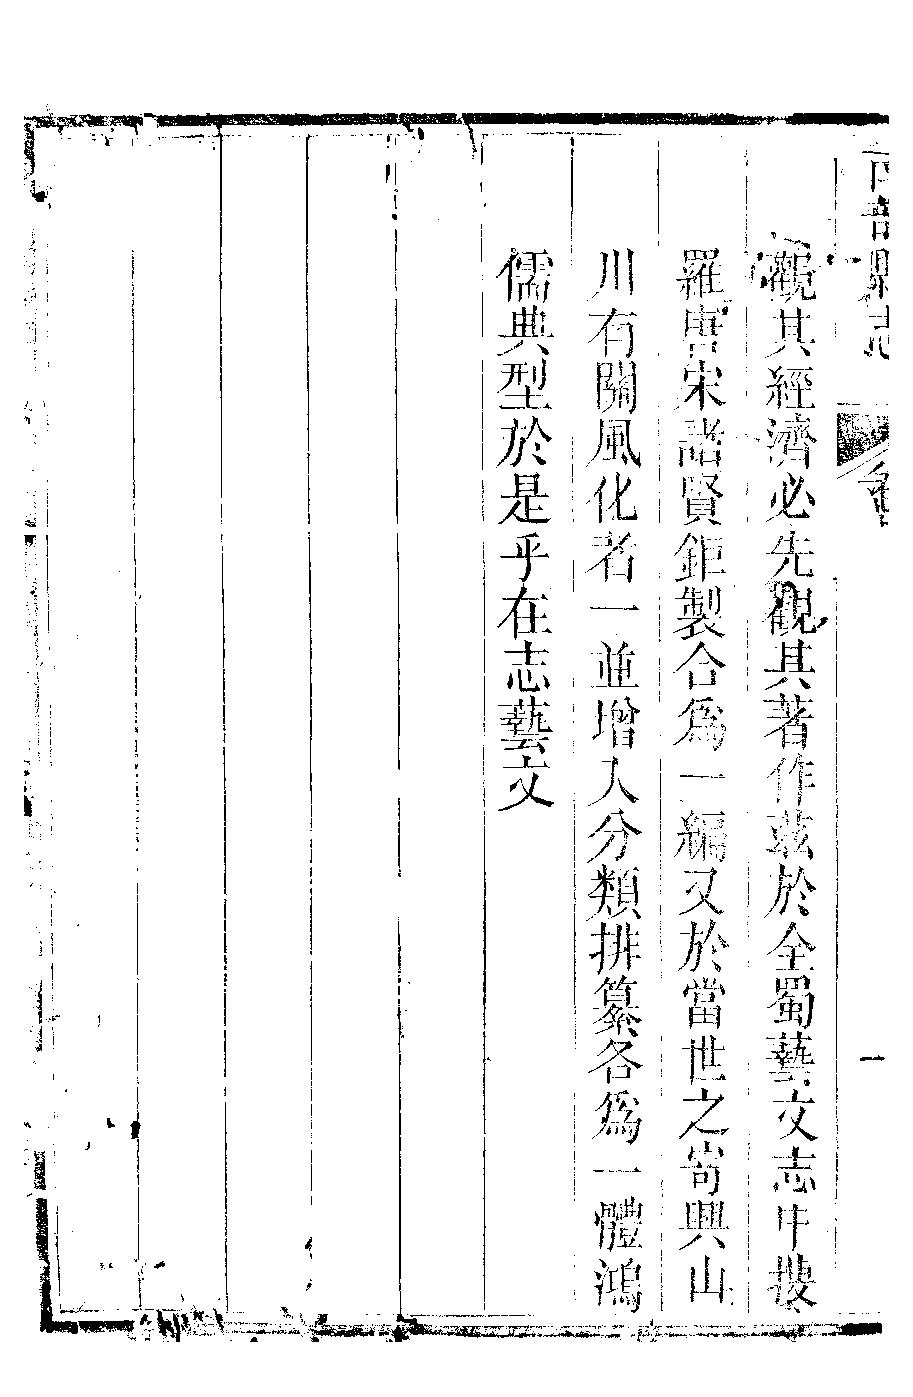 縣志
一
觀其經濟必先觀其著作茲於全蜀藝文志中搜
羅唐宋諸賢鉅製合爲一編又於當世之峕興山
川有關風化者一並增入分類排纂各爲一體鴻
儒典型於是乎在志藝文